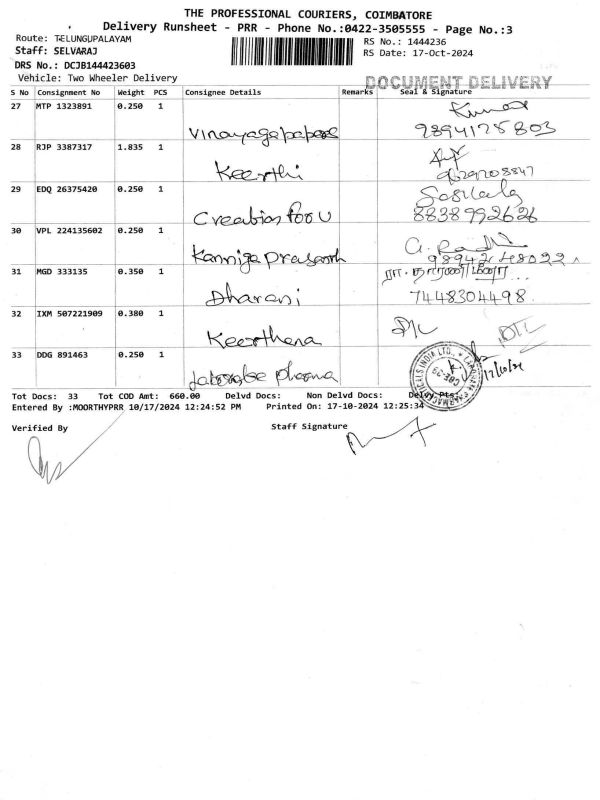 THE PROFESSIONAL COURIERS, COIMBATORE
Delivery Runsheet - PRR - Phone No.:0422-3505555 - Page No.:3
Route: TELUNGUPALAYAM
RS No.: 1444236
Staff: SELVARAJ
RS Date: 17-Oct-2024
DRS No.: DCJB144423603
Vehicle: Two Wheeler Delivery
DOCUMENT DELIVERY
S No Consignment No Weight PCS Consignee Details Remarks Seal & Signature
27 MTP 1323891 0.250 1 Kumar
Vinayagapapers 9894175803
28 RJP 3387317 1.835 1
Keerthi
29 EDQ 26375420 0.250 1 Sasikala
Creations For U 8838992626
30 VPL 224135602 0.250 1
Kanniga Prasanth 9894248022
31 MGD 333135 0.350 1
Dharani 7448304498
32 IXM 507221909 0.380 1
Keerthana
33 DDG 891463 0.250 1
pharma 17/10/24
Tot Docs: 33 Tot COD Amt: 660.00 Delvd Docs: Non Delvd Docs: Delvy Pts:
Entered By :MOORTHYPRR 10/17/2024 12:24:52 PM Printed On: 17-10-2024 12:25:34
Verified By Staff Signature